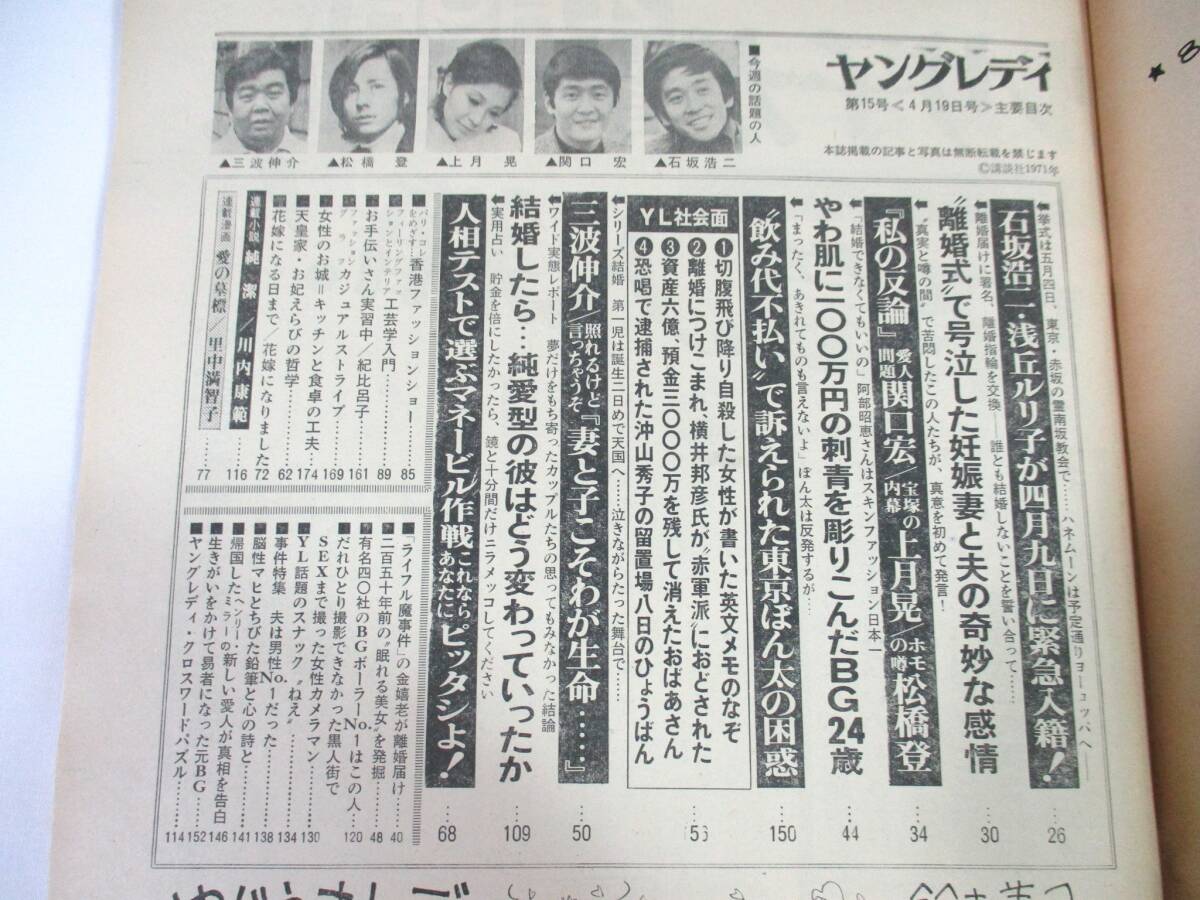 ヤングレディ
第15号≪4月19日号≫主要目次
本誌掲載の記事と写真は無断転載を禁じます
©講談社1971年
■今週の話題の人
▲石坂浩二
▲関口 宏
▲上月 晃
▲松橋 登
▲三波伸介
挙式は五月四日、東京・赤坂の霊南坂教会で……ハネムーンは予定通りヨーロッパへ──
石坂浩二・浅丘ルリ子が四月九日に緊急入籍! 26
離婚届けに署名、離婚指輪を交換──誰とも結婚しないことを誓い合って……
〝離婚式〟で号泣した妊娠妻と夫の奇妙な感情 30
〝真実と噂の間〟で苦悶したこの人たちが、真意を初めて発言!
『私の反論』愛人問題関口宏/宝塚の内幕上月晃/ホモの噂松橋登 34
「結婚できなくてもいいの」阿部昭恵さんはスキンファッション日本一
やわ肌に一〇〇万円の刺青を彫りこんだBG24歳 44
「まったく、あきれてものも言えないよ」ぽん太は反発するが…
〝飲み代不払い〟で訴えられた東京ぽん太の困惑 150
YL社会面 156
❶切腹飛び降り自殺した女性が書いた英文メモのなぞ
❷離婚につけこまれ、横井邦彦氏が〝赤軍派〟におどされた
❸資産六億、預金三〇〇〇万を残して消えたおばあさん
❹恐喝で逮捕された沖山秀子の留置場八日のひょうばん
シリーズ結婚 第一児は誕生二日めで天国へ……泣きながらたった舞台で……
三波伸介/照れるけど言っちゃうぞ『妻と子こそわが生命……』 50
ワイド実態レポート 夢だけをもち寄ったカップルたちの思ってもみなかった結論
結婚したら…純愛型の彼はどう変わっていったか 109
実用占い 貯金を倍にしたかったら、鏡と十分間だけニラメッコしてください
人相テストで選ぶマネービル作戦これならあなたにピッタシよ! 68
パリ・コレをめざす…香港ファッションショー 85
フィーリングファッションとインテリア工芸学入門 89
お手伝いさん実習中/紀比呂子 161
ファッショングラフカジュアルストライプ 169
女性のお城=キッチンと食卓の工夫 174
天皇家・お妃えらびの哲学 62
花嫁になる日まで/花嫁になりました 72
連載小説 純潔/川内康範 116
連載漫画 愛の墓標/里中満智子 77
■「ライフル魔事件」の金嬉老が離婚届け 40
■二百五十年前の〝眠れる美女〟を発掘 48
■有名四〇社のBGボーラーNo.1はこの人 120
■だれひとり撮影できなかった黒人街でSEXまで撮った女性カメラマン 130
■YL話題のスナック〝ねえ〟 134
■事件特集 夫は男性No.1だった 138
■脳性マヒとちびた鉛筆と心の詩と 141
■帰国したヘンリー・ミラーの新しい愛人が真相を告白 146
■生きがいをかけて易者になった元BG 152
■ヤングレディ・クロスワードパズル 114